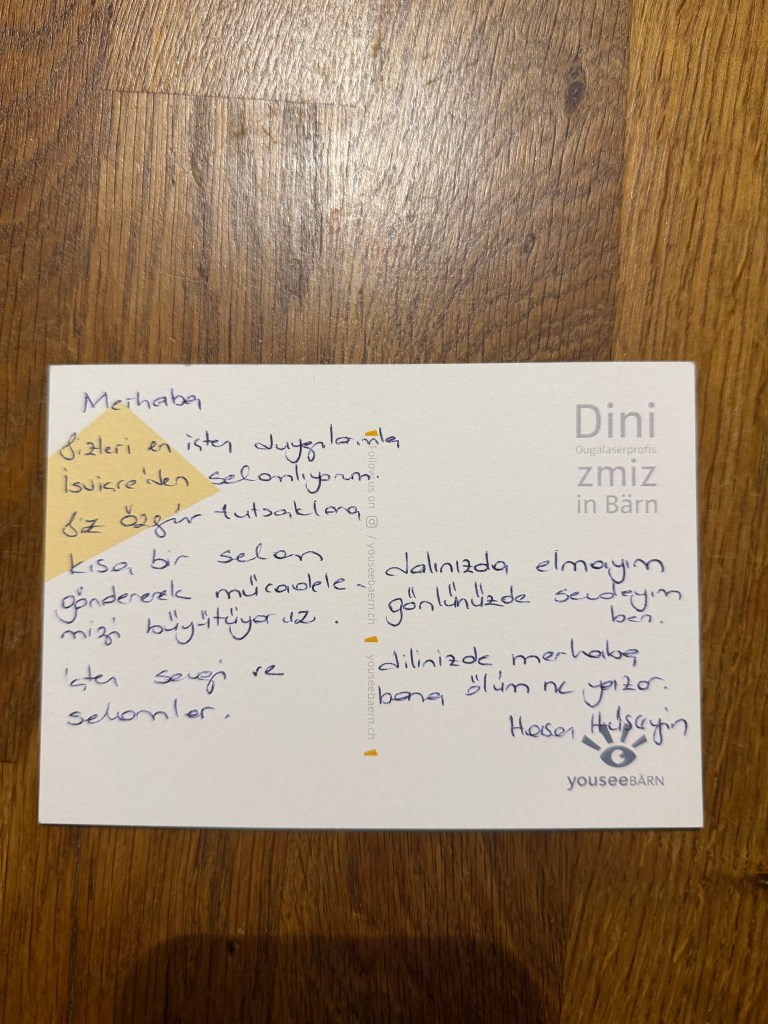 Merhaba
Sizleri en içten duygularımla
İsviçre'den selamlıyorum.
Siz özgür tutsaklara
kısa bir selam
göndererek mücadele-
mizi büyütüyoruz.
içten sevgi ve
selamlar.
Follow us on / youseebaern.ch
youseebaern.ch
Dini
Ougälaserprofis
zmiz
in Bärn
dalınızda elmayım
gönlünüzde sevdayım
ben.
dilinizde merhaba
bana ölüm ne yazar.
Hasan Hüseyin
youseeBÄRN